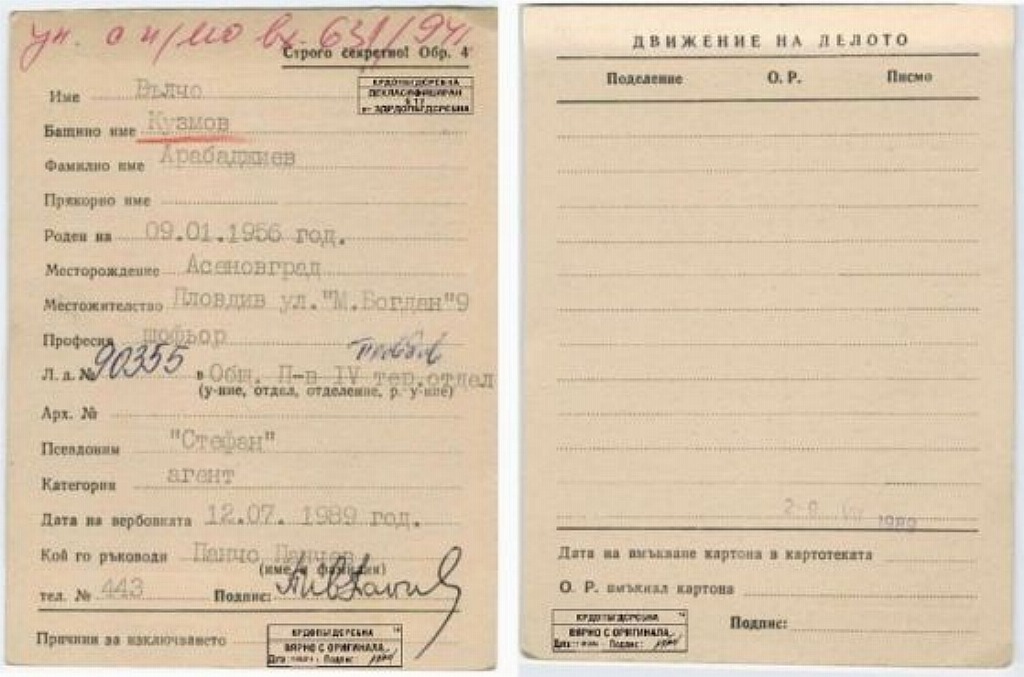 Строго секретно! Обр. 4
КРДОПБГДСРСБНА
ДЕКЛАСИФИЦИРАН
Име Вълчо
Бащино име Кузмов
Фамилно име Арабаджиев
Прякорно име
Роден на 09.01.1956 год.
Месторождение Асеновград
Местожителство Пловдив ул."М.Богдан"9
Професия шофьор
Л. д. № 90355 в Общ. П-в IV тер.отдел
(у-ние, отдел, отделение, р. у-ние)
Арх. №
Псевдоним "Стефан"
Категория агент
Дата на вербовката 12.07. 1989 год.
Кой го ръководи Панчо Панчев
(име и фамилия)
тел. № 443 Подпис:
Причини за изключването
ВЯРНО С ОРИГИНАЛА
Дата: Подпис:
ДВИЖЕНИЕ НА ДЕЛОТО
Поделение О. Р. Писмо
VII 1989
Дата на вмъкване картона в картотеката
О. Р. вмъкнал картона
Подпис:
ВЯРНО С ОРИГИНАЛА
Дата: Подпис: